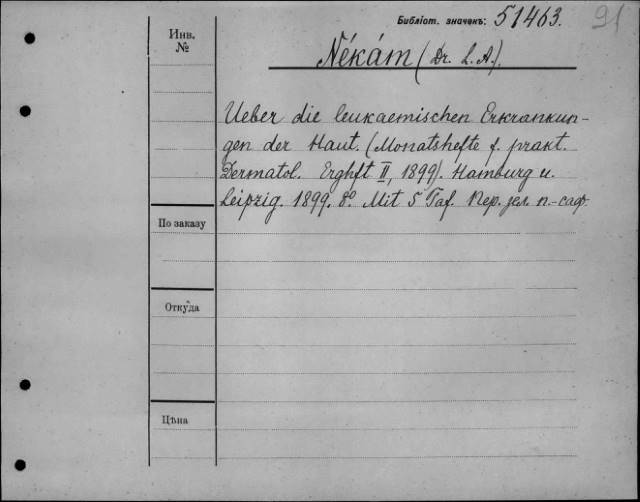 Библіот. значекъ: 51463. 91
Инв.
№
Nékám (Dr. L. A.).
Ueber die leukaemischen Erkrankun-
gen der Haut. (Monatshefte f. prakt.
Dermatol. Erghft II, 1899). Hamburg u.
Leipzig. 1899. 8º. Mit 5 Taf. Пер. зел. п.-саф.
По заказу
Откуда
Цѣна